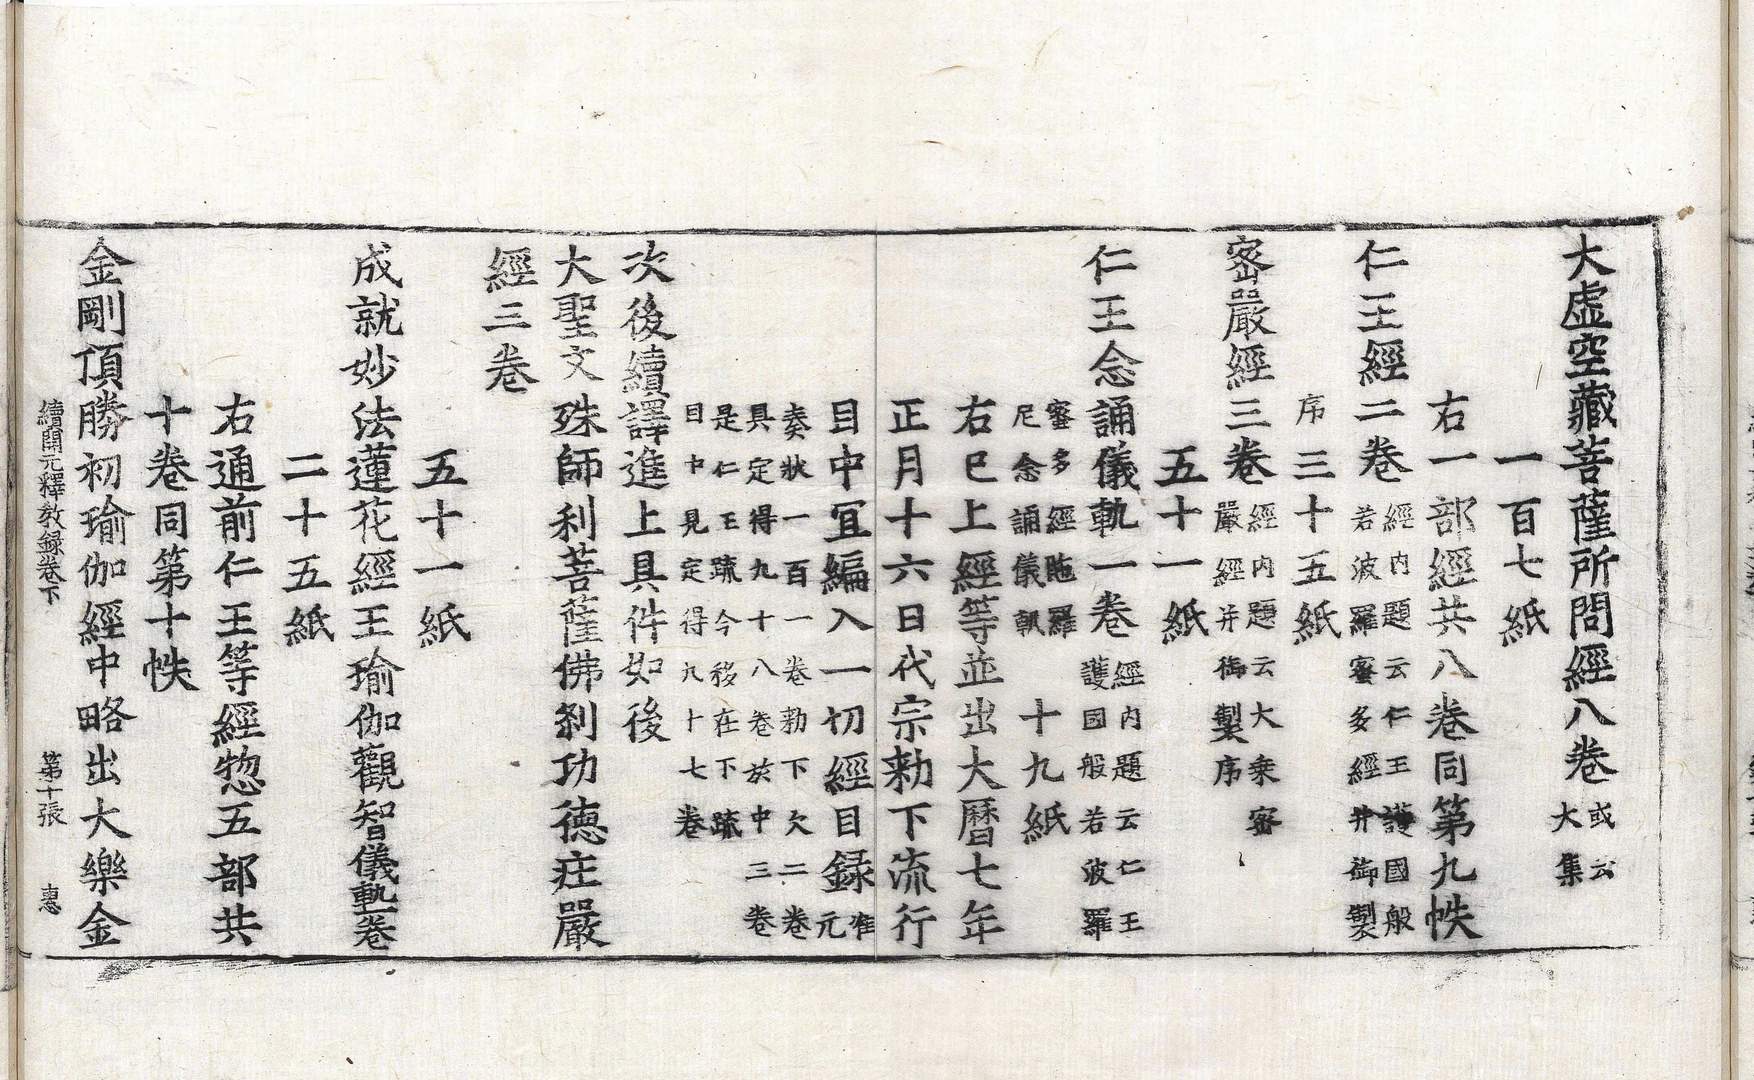 大虛空藏菩薩所問經八卷或云大集
一百七紙
右一部經共八卷同第九帙
仁王經二卷經内題云仁王護國般若波羅蜜多經并御製
序三十五紙
密嚴經三卷經内題云大乘密嚴經并御製序
五十一紙
仁王念誦儀軌一卷經内題云仁王護國般若波羅
蜜多經陁羅尼念誦儀軌十九紙
右已上經等並出大曆七年
正月十六日代宗勅下流行
目中冝編入一切經目録准元
奏狀一百一卷勅下欠二卷具定得九十八卷於中三卷
是仁王疏今移在下疏目中見定得九十七卷
次後續譯進上具件如後
大聖文殊師利菩薩佛刹功德庄嚴
經三卷
五十一紙
成就妙法蓮花經王瑜伽觀智儀軌一卷
二十五紙
右通前仁王等經惣五部共
十卷同第十帙
金剛頂勝初瑜伽經中略出大樂金
續開元釋教録卷下 第十張